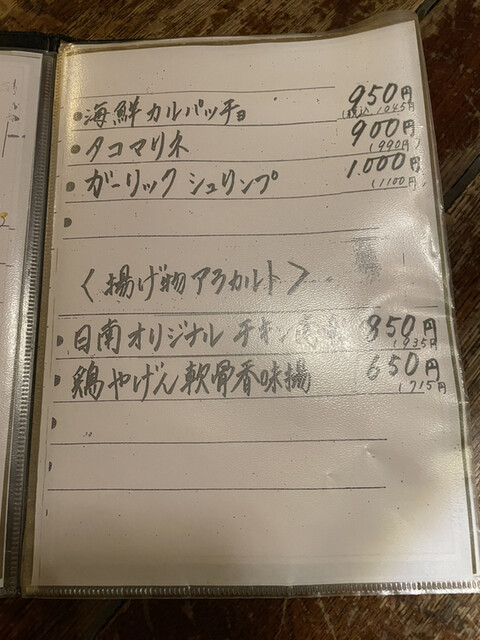 海鮮カルパッチョ 950円
(税込 1045円)
タコマリネ 900円
(990円)
ガーリックシュリンプ 1.000円
(1100円)
〈揚げ物アラカルト〉
日南オリジナル チキン 850円
(935円)
鶏やげん軟骨香味揚 650円
(715円)